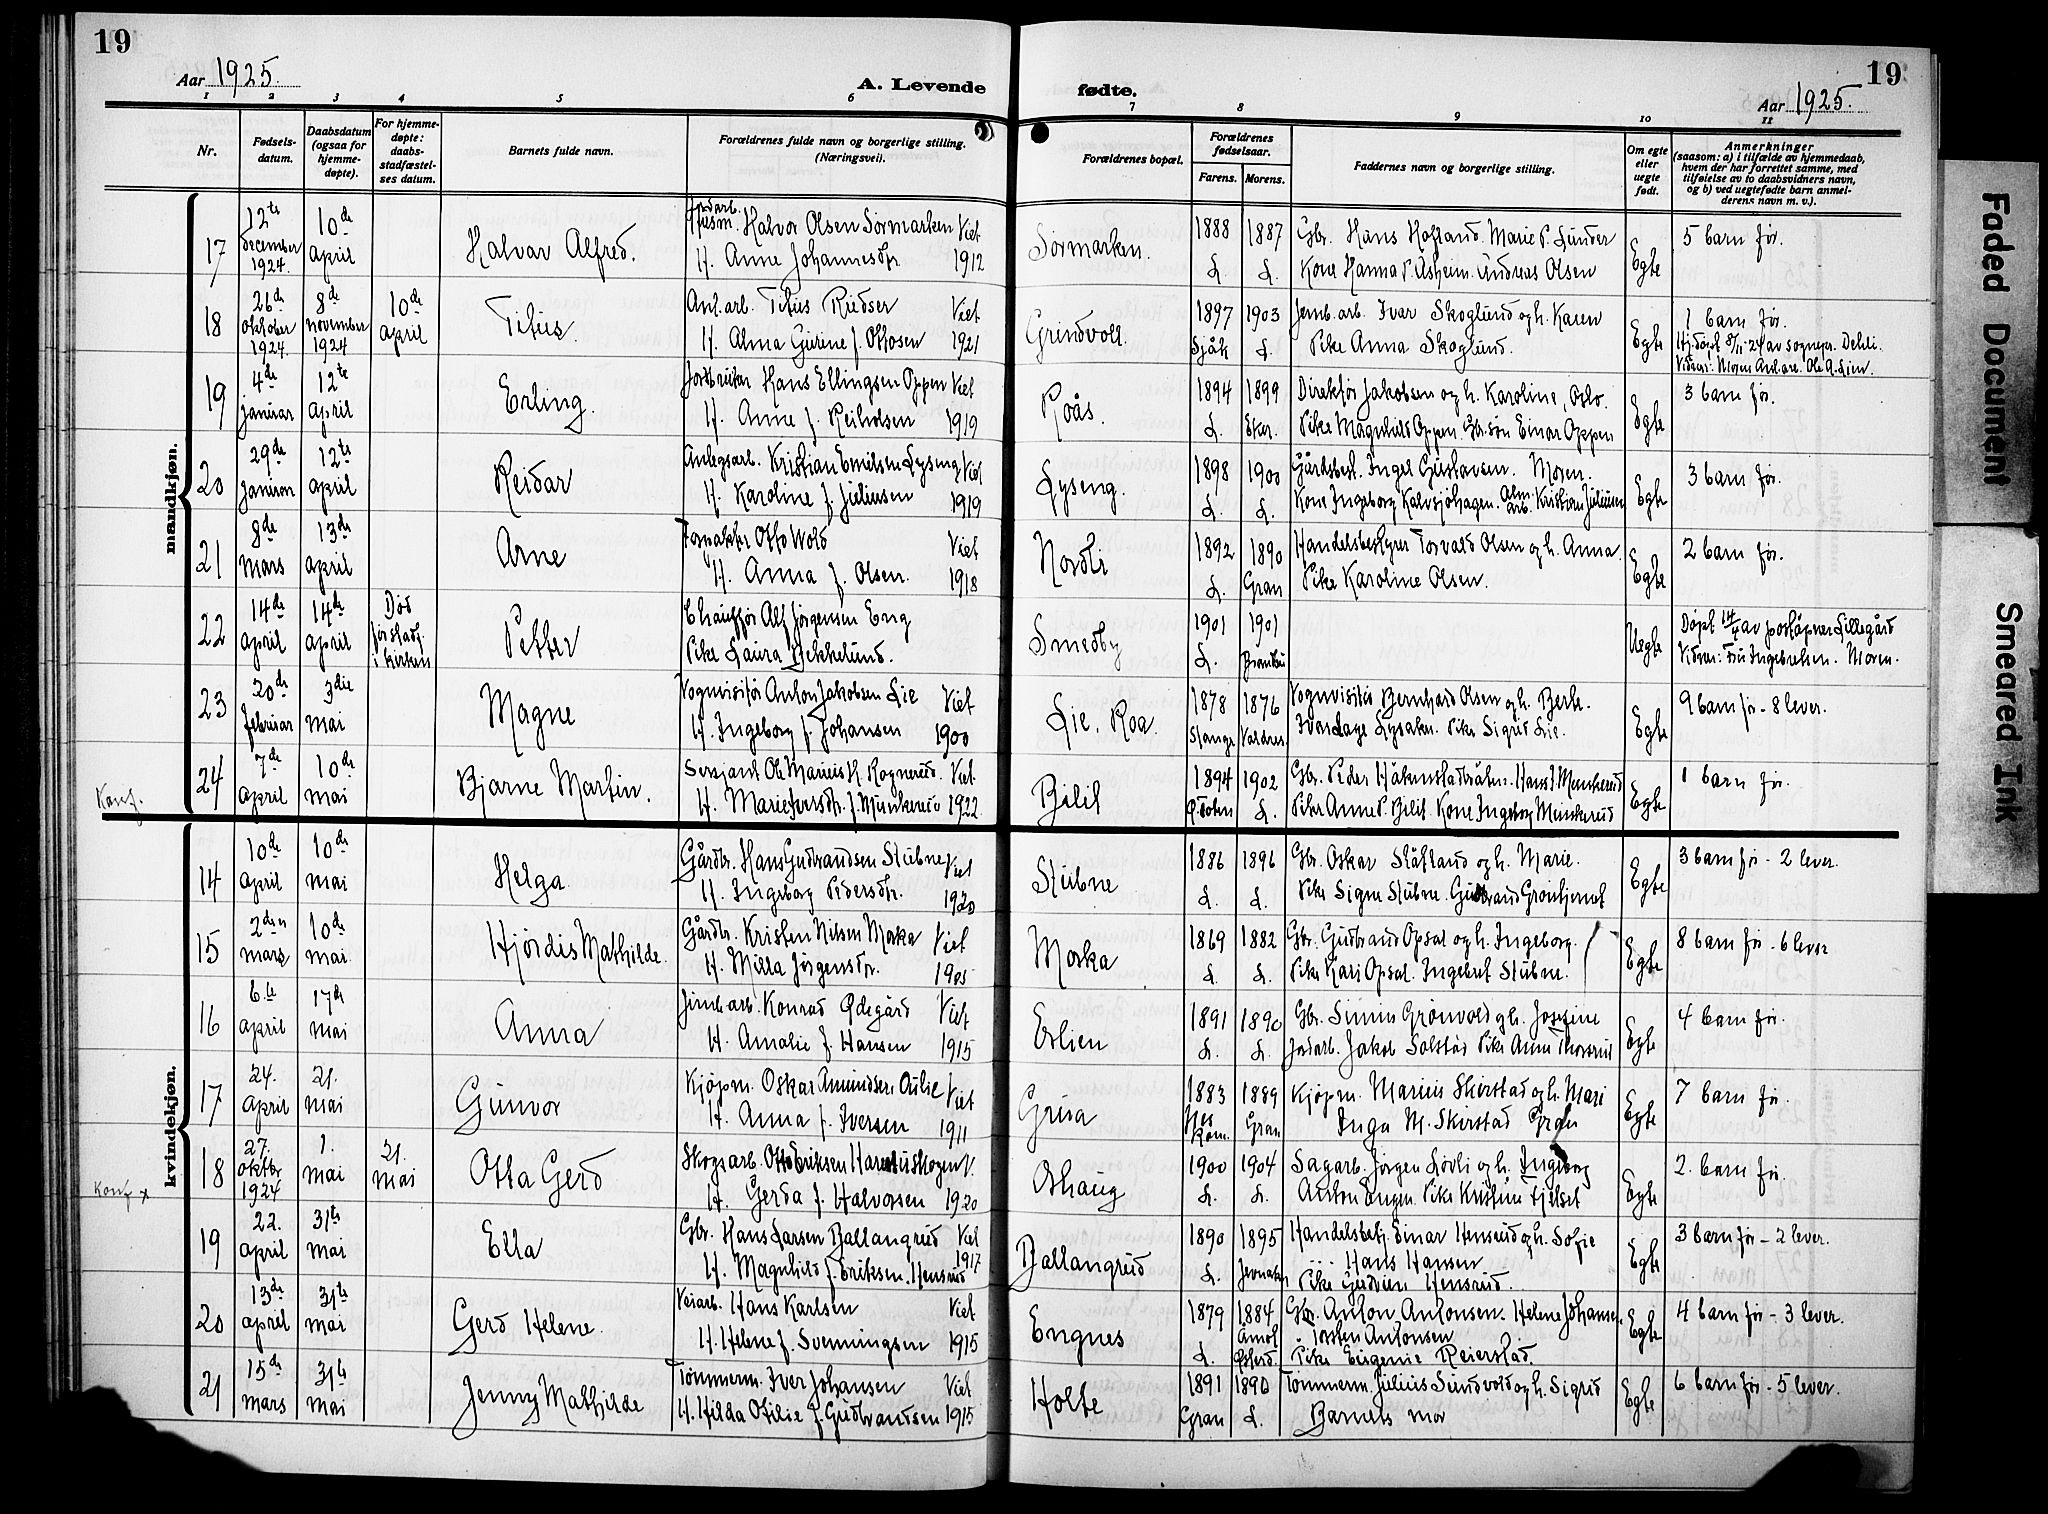 19
Aar 1925.
A. Levende
fødte.
Aar 1925.
19
1 2 3 4 5 6 7 8 9 10 11
Nr.
Fødsels-
datum.
Daabsdatum
(ogsaa for
hjemme-
døpte).
For hjemme-
døpte:
daabs-
stadfæstel-
ses datum.
Barnets fulde navn.
Forældrenes fulde navn og borgerlige stilling.
(Næringsvei).
Forældrenes bopæl.
Forældrenes
fødselsaar.
Farens. Morens.
Faddernes navn og borgerlige stilling.
Om egte
eller
uegte
født.
Anmerkninger
(saasom: a) i tilfælde av hjemmedaab,
hvem der har forrettet samme, med
tilføielse av to daabsvidners navn,
og b) ved uegtefødte barn anmel-
derens navn m. v.).
mandkjøn.
17 12te december 1924. 10de april Halvar Alfred. Halvor Olsen Sørmarken Viet
H. Anne Johannesdtr. 1912
Sørmarken. 1888 1887 Gbr. Hans Hofland. Marie P. Lunder Egte 5 barn før.
L. L. Kone Hanna P. Åsheim. Andreas Olsen
18 26de oktober 1924. 8de november 1924 10de april Titus. Anl.arb. Titus Rudser Viet
H. Alma Gurine f. Ottosen 1921
Grindvoll. 1897 1903 Jernb.arb. Ivar Skoglund og h. Karen Egte 1 barn før.
Sjåk L. Pike Anna Skoglund. Hj.døpt 8/11-24 av sognepr. Dehli.
Vidner: Moren Anl.arb. Ole A. Lien.
19 4de januar 12te april Erling. Jordbruker Hans Ellingsen Oppen Viet
H. Anne f. Reiholsen 1919
Roås. 1894 1899 Direktør Jakobsen og h. Karoline, Oslo. Egte 3 barn før.
L. Eker. Pike Magnhild Oppen. Gbr.søn Einar Oppen
20 29de januar 12te april Reidar Anlegsarb. Kristian Emilsen Lyseng Viet
H. Karoline f. Juliussen 1919
Lyseng. 1898 1900 Gårdsbest. Ingel Gustavsen. Moren. Egte 3 barn før.
L. L. Kone Ingeborg Kalvsjøhagen. Kristian Juliussen
21 8de mars 13de april Arne Otto Wold Viet
H. Anna f. Olsen. 1918
Nordli 1892 1890 Handelsbestyrer Torvald Olsen og h. Anna. Egte 2 barn før.
L. Gran Pike Karoline Olsen.
22 14de april 14de april Død før stadf. i kirken Petter Chauffør Alf Jørgensen Eng
Pike Laura Bekkelund.
Smedby 1901 1901 Uegte Døpt 14/4 av poståpner Lillegård
L. Brandbu Vidner: Fru Ingebretsen. Moren.
23 20de februar 3die mai Magne Vognvisitør Anton Jakobsen Lie Viet
H. Ingeborg f. Johansen 1900
Lie. Roa. 1878 1876 Vognvisitør Bernhard Olsen og h. Berte. Egte 9 barn før - 8 lever.
Stange Valdres. Lysaker. Pike Sigrid Lie.
Konf. 24 7de april 10de mai Bjarne Martin. Sersjant Ole Marius H. Rognerud. Viet
H. Marie Iversdtr. f. Munkerud 1922.
Bilit 1894 1902 Gbr. Peder Håkenstadbråten. Hans I. Munkerud Egte 1 barn før.
Ø. Toten L. Pike Anne P. Bilit. Kone Ingeborg Munkerud
kvindekjøn.
14 10de april 10de mai Helga. Gårdbr. Hans Gudbrandsen Stubne Viet
H. Ingeborg Pedersdtr. 1920
Stubne 1886 1896 Gbr. Oskar Slåtland og h. Marie. Egte 3 barn før - 2 lever.
L. L. Pike Signe Stubne. Gudbrand Grøntjernet
15 2den mars 10de mai. Hjørdis Mathilde. Gårdbr. Kristen Nilsen Morka Viet
H. Milla Jørgensdtr. 1905
Morka 1869 1882 Gbr. Gudbrand Opsal og h. Ingeborg. Egte 8 barn før - 6 lever
L. L. Pike Kari Opsal. Ingebret Stubne.
16 6te april 17de mai Anna Jernb.arb. Konrad Ødegård Viet
H. Amalie f. Hansen 1915
Erlien 1891 1890 Gbr. Simen Grønvold og h. Josefine Egte 4 barn før.
L. L. Jordarb. Jakob Solstad Pike Anna Thorsrud
17 24. april 21. mai Gunvor Kjøpm. Oskar Amundsen Aulie Viet
H. Anna f. Iversen 1911
Grua 1883 1889 Kjøpm. Marius Skirstad og h. Mari Egte 7 barn før.
Nes Rom. Gran Inga M. Skirstad Gran
Konf x 18 27. oktbr 1924 1. mai 21. mai Otta Gerd Skogsarb. Otto Eriksen Harestuskogen V.
H. Gerda f. Halvorsen 1920
Oshaug 1900 1904 Sagarb. Jørgen Løvli og h. Ingeborg Egte 2. barn før.
L. L. Anton Engen. Pike Kristine Fjelset
19 22. april 31te mai Ella Gbr. Hans Larsen Ballangrud Viet
H. Magnhild f. Eriksen. Hensrud 1917
Ballangrud 1890 1895 Handelsbetj. Einar Hensrud og h. Sofie Egte 3 barn før - 2 lever.
L. Jevnaker Hans Hansen
Pike Gudrun Hensrud.
20 13de april 31te mai Gerd Helene. Veiarb. Hans Karlsen Viet
H. Helene f. Svenningsen 1915
Engnes 1879 1884 Gbr. Anton Antonsen. Helene Johansen. Egte 4 barn før - 3 lever.
L. Åmot Østerd. Torsten Antonsen
Pike Eugenie Reierstad.
21 15de mars 31te mai Jenny Mathilde Tømmerm. Iver Johansen Viet
H. Hilda Otilie f. Gudbrandsen 1915
Holte 1891 1890 Tømmerm. Julius Sundvold og h. Sigrid Egte 6 barn før - 5 lever.
Gran L. Barnets mor
Faded Document
Smeared Ink